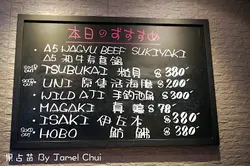 本日のすすめ
A5 WAGYU BEEF SUKIYAKI
A5 和牛寿喜鍋
TSUBUKAI 粒貝 $380
UNI 原隻活海膽 $200
WILD ATI 手釣池魚 $300
MAGAKI 真蠔 $78
ISAKI 伊佐木 $380
HOBO 魴鮄 $380
果占苗 By Jamel Chui